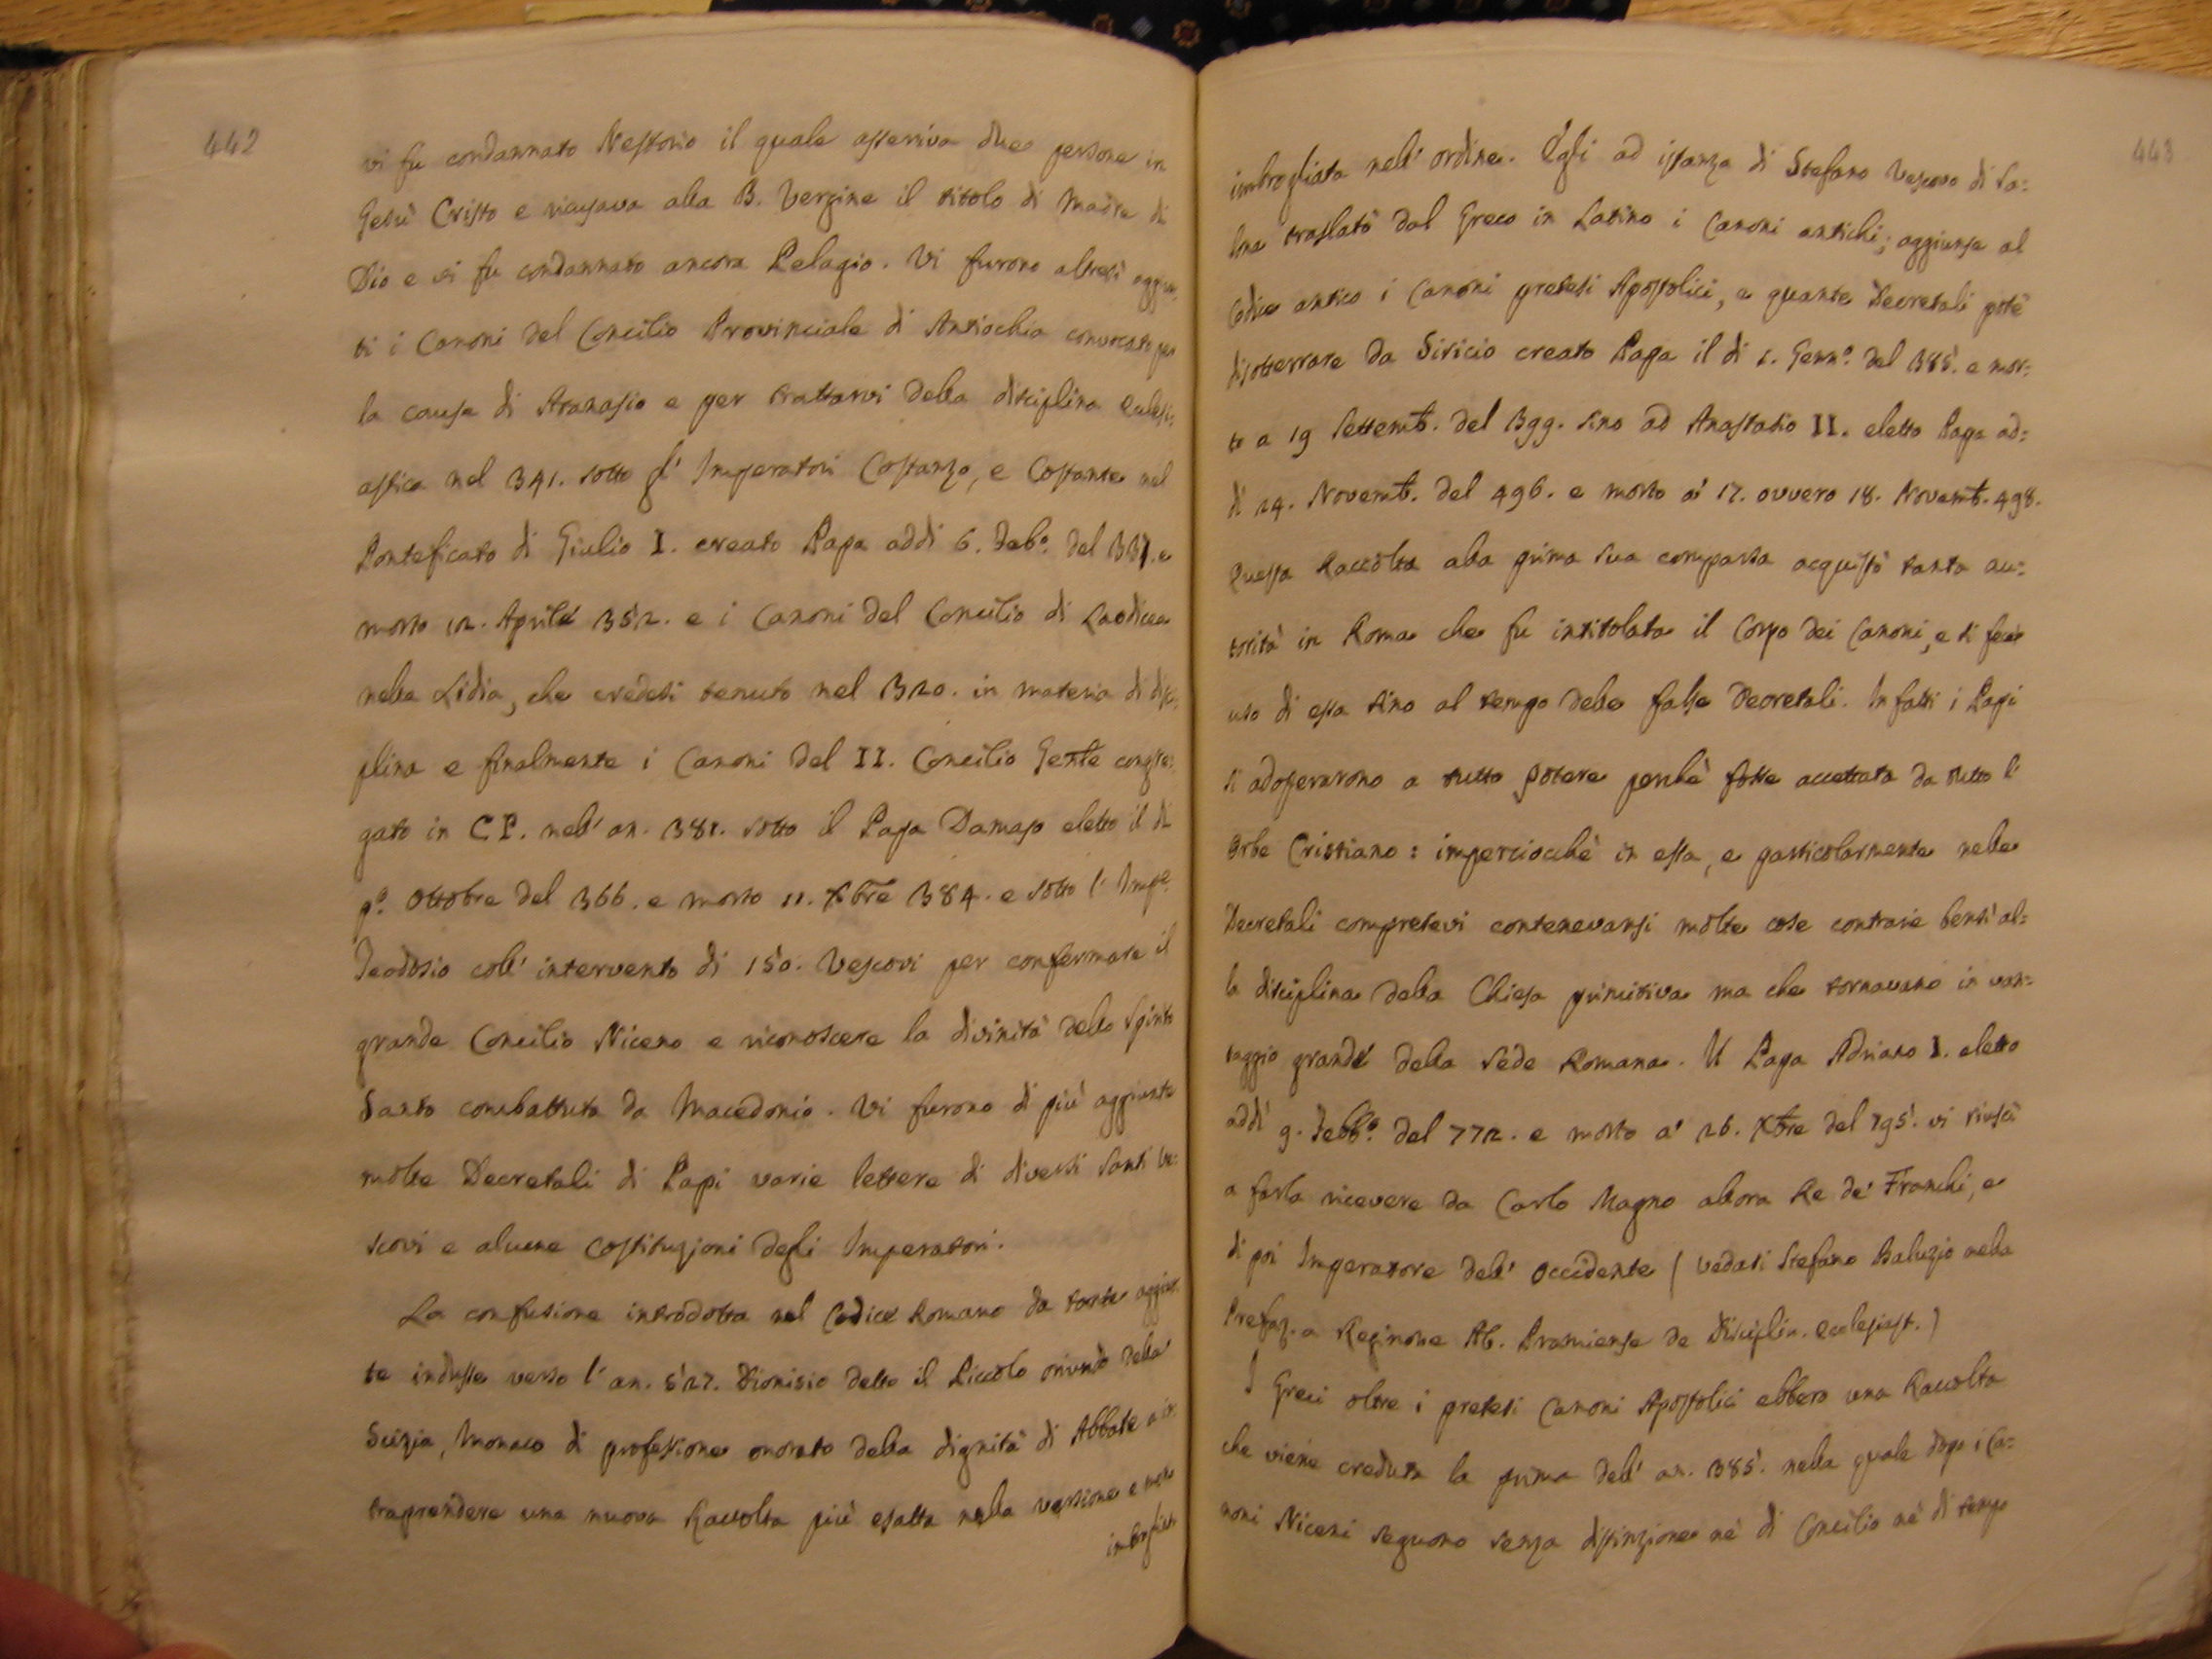 442
vi fu condannato Nestorio il quale asseriva due persone in
Gesù Cristo e ricusava alla B. Vergine il titolo di Madre di
Dio e vi fu condannato ancora Pelagio. Vi furono altresì aggiun:
ti i Canoni del Concilio Provinciale di Antiochia convocato per
la causa di Atanasio e per trattarvi della disciplina Eclesi:
astica nel 341. sotto gl' Imperatori Costanzo, e Costante nel
Ponteficato di Giulio I. creato Papa addì 6. Feb.º del 337. e
morto 12. Aprile 352. e i Canoni del Concilio di Laodicea
nella Lidia, che credesi tenuto nel 320. in materia di disci:
plina e finalmente i Canoni del II. Concilio Genle congre:
gato in CP. nell' an. 381. sotto il Papa Damaso eletto il dì
p.º Ottobre del 366. e morto 11. Xbre 384. e sotto l' Impe.
Teodosio coll' intervento di 150. Vescovi per confermare il
grande Concilio Niceno e riconoscere la divinità dello Spirito
Santo combattuta da Macedonio. Vi furono di più aggiunte
molte Decretali di Papi varie lettere di diversi Santi Ve:
scovi e alcune Costituzioni degli Imperatori.
La confusione introdotta nel Codice Romano da tante aggiun:
te indusse verso l' an. 527. Dionisio detto il Piccolo oriundo della
Scizia, Monaco di professione onorato della dignità di Abbate a in:
traprendere una nuova Raccolta più esatta nella versione e meno
imbrogliata
443
imbrogliata nell' ordine. Egli ad istanza di Stefano Vescovo di Sa:
lona traslatò dal Greco in Latino i Canoni antichi; aggiunse al
Codice antico i Canoni pretesi Apostolici, e quante Decretali potè
disotterrare da Siricio creato Papa il dì 1. Genn.º del 385. e mor:
to a 19 Settemb. del 399. sino ad Anastasio II. eletto Papa ad:
dì 24. Novemb. del 496. e morto a' 17. ovvero 18. Novemb. 498.
Questa Raccolta alla prima sua comparsa acquistò tanta au:
torità in Roma che fu intitolata il Corpo dei Canoni, e si fece
uso di essa sino al tempo delle false Decretali. In fatti i Papi
si adoperarono a tutto potere perchè fosse accettata da tutto l'
Orbe Cristiano: imperciocchè in essa, e particolarmente nelle
Decretali compresevi contenevansi molte cose contrarie bensì al:
la disciplina della Chiesa primitiva ma che tornavano in van:
taggio grande della Sede Romana. Il Papa Adriano I. eletto
addì 9. Febb.º del 772. e morto a' 26. Xbre del 795. vi riuscì
a farla ricevere da Carlo Magno allora Re de' Franchi, e
di poi Imperatore dell' Occidente (vedasi Stefano Baluzio nella
Prefaz. a Reginone Ab. Prumiense de Disciplin. Ecclesiast.)
I Greci oltre i pretesi Canoni Apostolici ebbero una Raccolta
che viene creduta la prima dell' an. 385. nella quale dopo i Ca:
noni Niceni seguono senza distinzione nè di Concilio nè di tempo